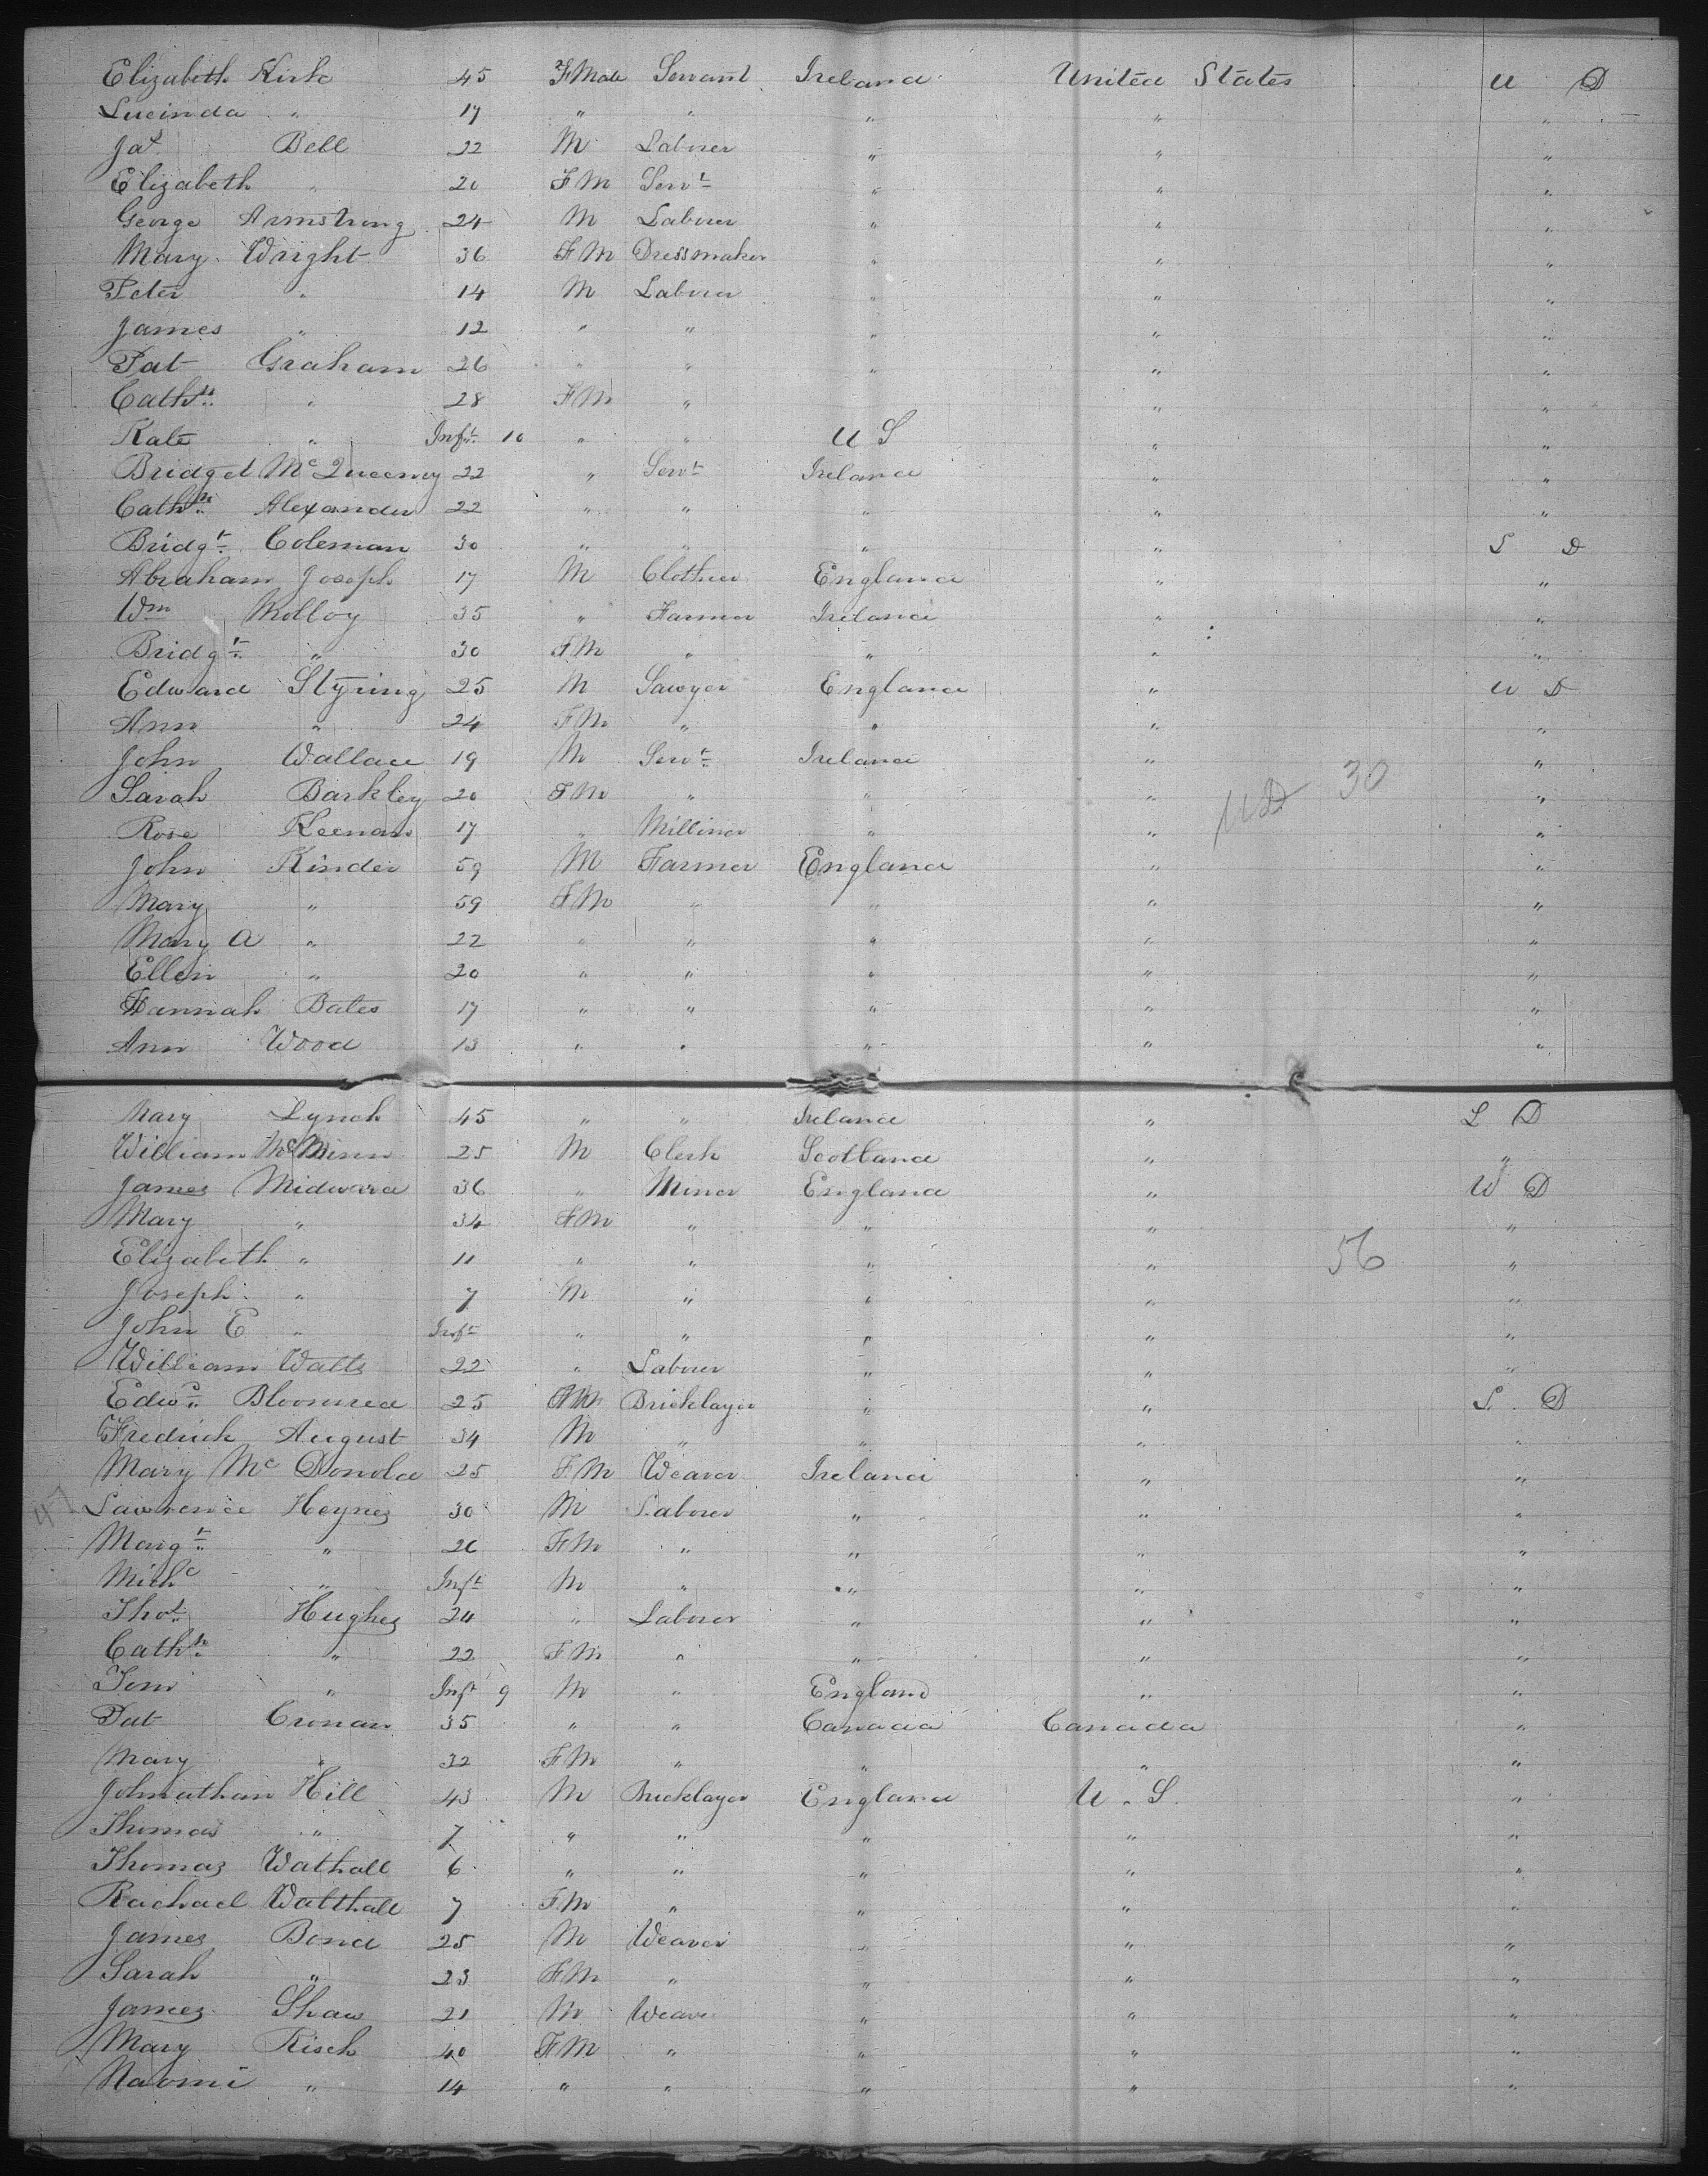 Elizabeth Kirk 45 FMale Servant Ireland United States U D
Lucinda " 17 " " " " "
Jas Bell 22 M Laborer " " "
Elizabeth " 20 FM Servt " " "
George Armstrong 24 M Laborer " " "
Mary Wright 36 FM Dressmaker " " "
Peter " 14 M Laborer " " "
James " 12 " " " " "
Pat Graham 26 " " " " "
Cathn " 28 FM " " " "
Kate " Inft 10 " " U S " "
Bridget McQueeney 22 " Servt Ireland " "
Cathn Alexander 22 " " " " "
Bridgt Coleman 30 " " " " S D
Abraham Joseph 17 M Clothier England " "
Wm Molloy 35 " Farmer Ireland " "
Bridgt " 30 FM " " " "
Edward Styring 25 M Sawyer England " U D
Ann " 24 FM " " " "
John Wallace 19 M Servt Ireland " "
Sarah Barkley 20 FM " " " UD 30 "
Rose Keenan 17 " Milliner " " "
John Kinder 59 M Farmer England " "
Mary " 59 FM " " " "
Mary A " 22 " " " " "
Ellen " 20 " " " " "
Hannah Bates 17 " " " " "
Ann Wood 13 " " " " "
Mary Lynch 45 " " Ireland " L D
William McMinn 25 M Clerk Scotland " "
James Midward 36 " Miner England " U D
Mary " 34 FM " " " "
Elizabeth " 11 " " " " 56 "
Joseph " 7 M " " " "
John E " Inft " " " " "
William Watts 22 " Laborer " " "
Edwd 25 FM Bricklayer " " S D
Fredrick August 34 M " " " "
Mary Mc Donold 25 FM Weaver Ireland " "
47 Lawrence Heynes 30 M Laborer " " "
Margt " 26 FM " " " "
Michl " Inft M " " " "
Thos Hughes 24 " Laborer " " "
Cathn " 22 FM " " " "
" Inft 9 M " England " "
Pat Cronan 35 " " Canada Canada "
Mary " 32 FM " " " "
Johnathan Hill 43 M Bricklayer England U . S. "
Thomas " 7 " " " " "
Thomas Wathall 6 " " " " "
Rachael Watthall 7 FM " " " "
James Bond 25 M Weaver " " "
Sarah " 23 FM " " " "
James Shaw 21 M Weaver " " "
Mary Risch 40 FM " " " "
Naomi " 14 " " " " "